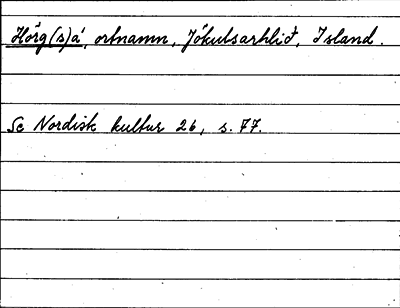 Hörg(s)á, ortnamn, Jökulsárhlið, Island.
Se Nordisk kultur 26, s. 77.